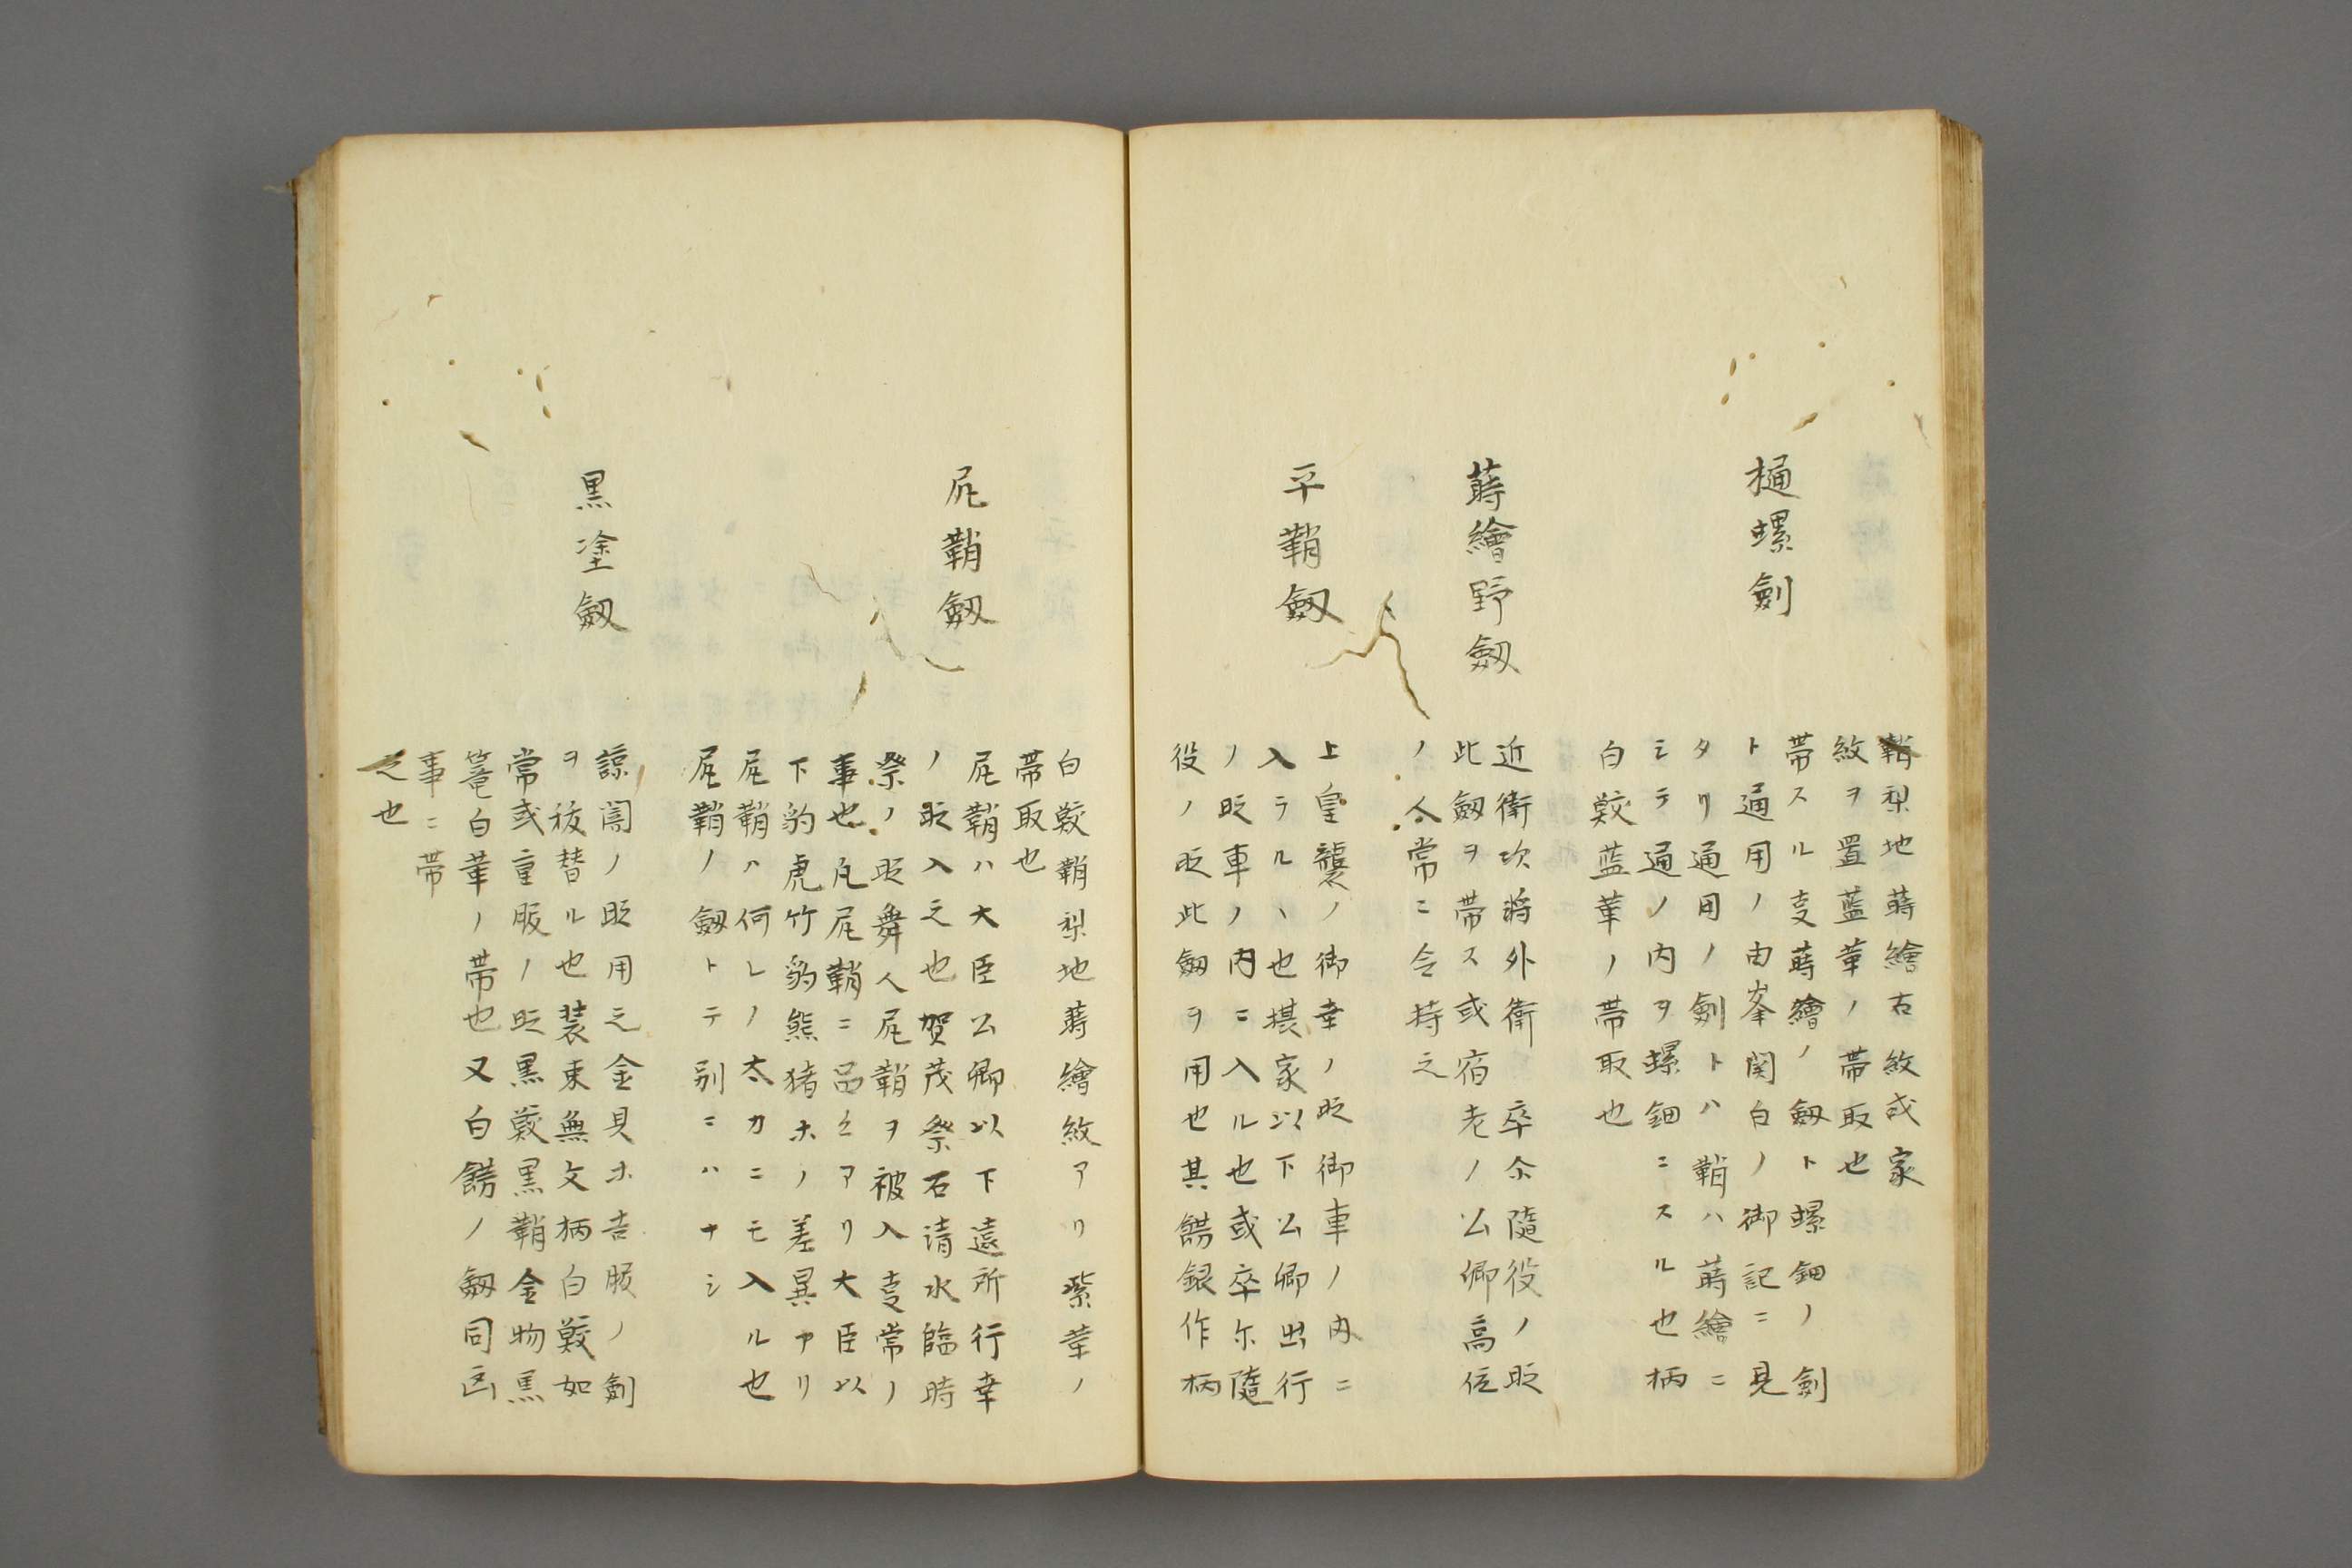 鞘梨地蒔繪古紋或家
紋ヲ置藍革ノ帶取也
樋螺劍
帶スル㕝蒔繪ノ劔ト螺鈿ノ劍
ト通用ノ由峯関白ノ御記ニ見
タリ通用ノ劍トハ鞘ハ蒔繪ニ
シテ通ノ内ヲ螺鈿ニスル也柄
白鮫藍革ノ帶取也
蒔繪野劔
近衛次将外衛卒尒隨役ノ時
此劔ヲ帶ス或宿老ノ公卿高位
ノ人常ニ令持之
平鞘劔
上皇褻ノ御幸ノ時御車ノ内ニ
入ラルヽ也摂家以下公卿出行
ノ時車ノ内ニ入ル也或卒尓隨
役ノ時此劔ヲ用也其餝銀作柄
白鮫鞘梨地蒔繪紋アリ紫革ノ
帶取也
尻鞘劔
尻鞘ハ大臣公卿以下遠所行幸
ノ時入之也賀茂祭石清水臨時
祭ノ時舞人尻鞘ヲ被入㕝常ノ
事也凡尻鞘ニ品々アリ大臣以
下豹虎竹豹熊猪ホノ差異アリ
尻鞘ハ何レノ太刀ニモ入ル也
尻鞘ノ劔トテ別ニハナシ
黒塗劔
諒闇ノ時用之金具ホ吉服ノ劍
ヲ抜替ル也装束無文柄白鮫如
常或重服ノ時黒鮫黒鞘金物黒
篭白革ノ帶也又白餝ノ劔同凶
事ニ帶
之也